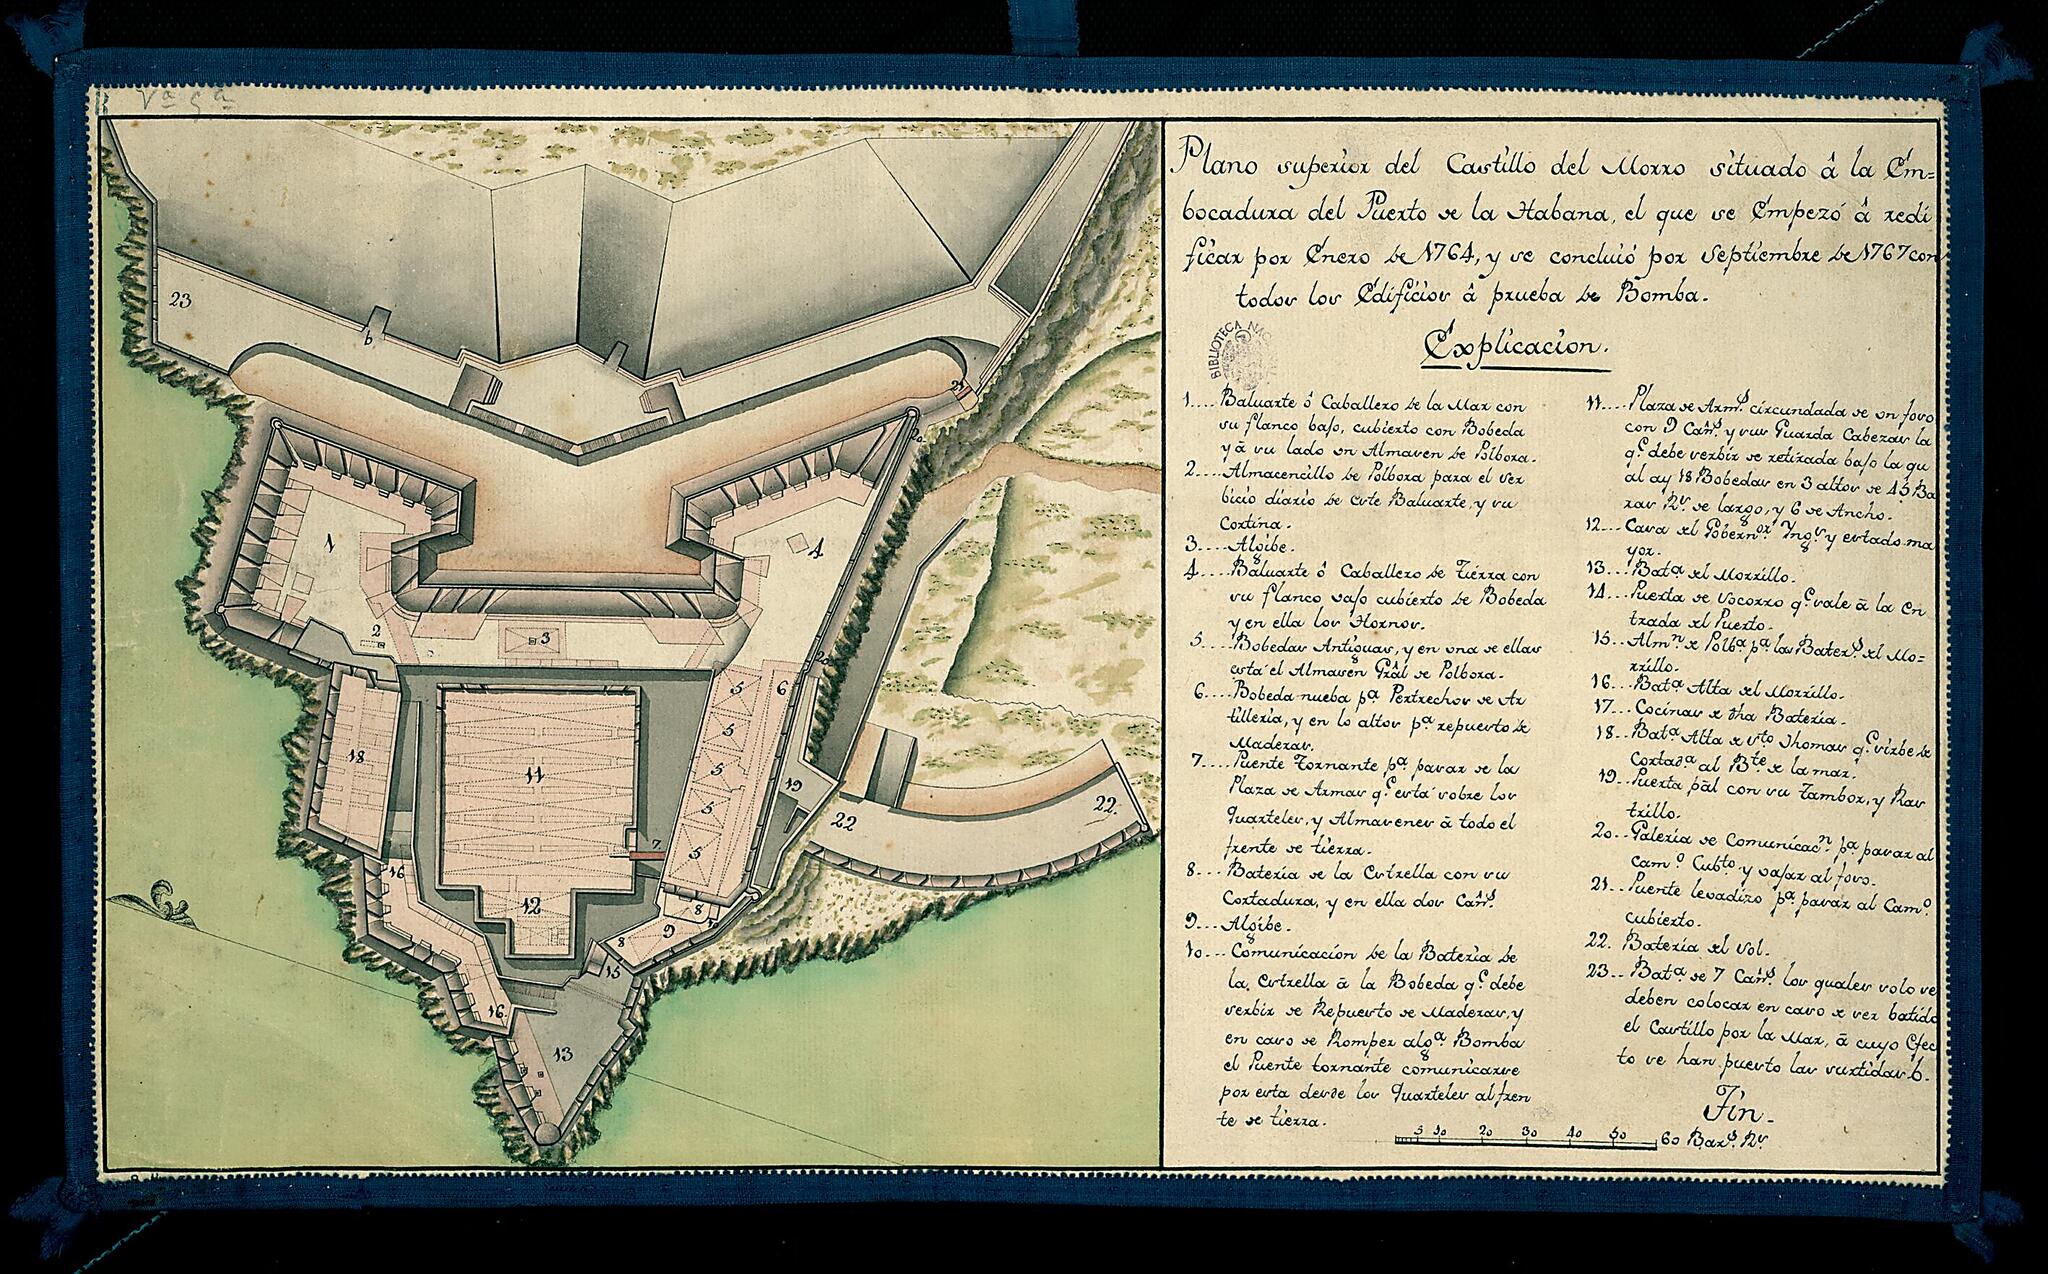 Plano superior del Castillo del Morro situado â la Em=
bocadura del Puerto de la Habana, el que se Empezó â redi
ficar por Enero de 1764, y se concluió por Septiembre de 1767 con
todos los Edificios â prueba de Bomba.
BIBLIOTECA NAC
Explicacion.
1.... Baluarte ô Caballero de la Mar con
su flanco bajo, cubierto con Bobeda
y â su lado un Almasen de Polbora.
2.... Almacencillo de Polbora para el ser
bicio diario de este Baluarte, y su
Cortina.
3.... Algibe.
4.... Baluarte ô Caballero de Tierra con
su flanco vajo cubierto de Bobeda
y en ella los Hornos.
5.... Bobedas Antiguas, y en una de ellas
está el Almasen Gr̃al de Polbora.
6.... Bobeda nueba pª Pertrechos de Ar
tilleria, y en lo altos pª repuesto de
Maderas.
7.... Puente Tornante pª pasar de la
Plaza de Armas q.ᵉ está sobre los
Quarteles, y Almasenes â todo el
frente de tierra.
8.... Bateria de la Estrella con su
Cortadura, y en ella dos Cañ.ˢ
9.... Algibe.
10... Comunicacion de la Bateria de
la Estrella â la Bobeda q.ᵉ debe
serbir de Repuesto de Maderas, y
en caso de Romper alg.ª Bomba
el Puente tornante comunicarse
por esta desde los Quarteles al fren
te de tierra.
11.... Plaza de Arm.ˢ circundada de un foso
con 9 Cañ.ˢ y sus Guarda Cabezas la
q.ᵉ debe serbir de retirada bajo la qu
al ay 18 Bobedas en 3 altos de 45 Ba
ras R.ˢ de largo, y 6 de Ancho.
12... Casa del Gobern.ᵒʳ Yng.ˢ y estado ma
yor.
13... Batª del Morrillo.
14... Puerta de Socorro q.ᵉ sale â la en
trada del Puerto.
15... Alm.ⁿ de Polb.ª pª las Bater.ˢ del Mo=
rrillo.
16... Batª Alta del Morrillo.
17... Cocinas de dha Bateria.
18... Batª Alta de sᵗᵒ Thomas q.ᵉ sirbe de
Cortadª al Bᵗᵉ de la mar.
19... Puerta p̃al con su Tambor, y Ras
trillo.
20... Galeria de Comunicac.ⁿ pª pasar al
cam.º Cubᵗᵒ y vajar al foso.
21... Puente levadizo pª pasar al Cam.º
cubierto.
22. Bateria del Sol.
23... Batª de 7 Cañ.ˢ los quales solo se
deben colocar en caso de ser batido
el Castillo por la Mar, â cuyo Efec
to se han puesto las surtidas b.
Fin.
5 10 20 30 40 50 60 Bar.ˢ R.ˢ
23
b
21
20
1
4
2
3
20
5
6
5
18
5
11
5
19
22
22
7
5
16
12
8
9
8
15
16
13